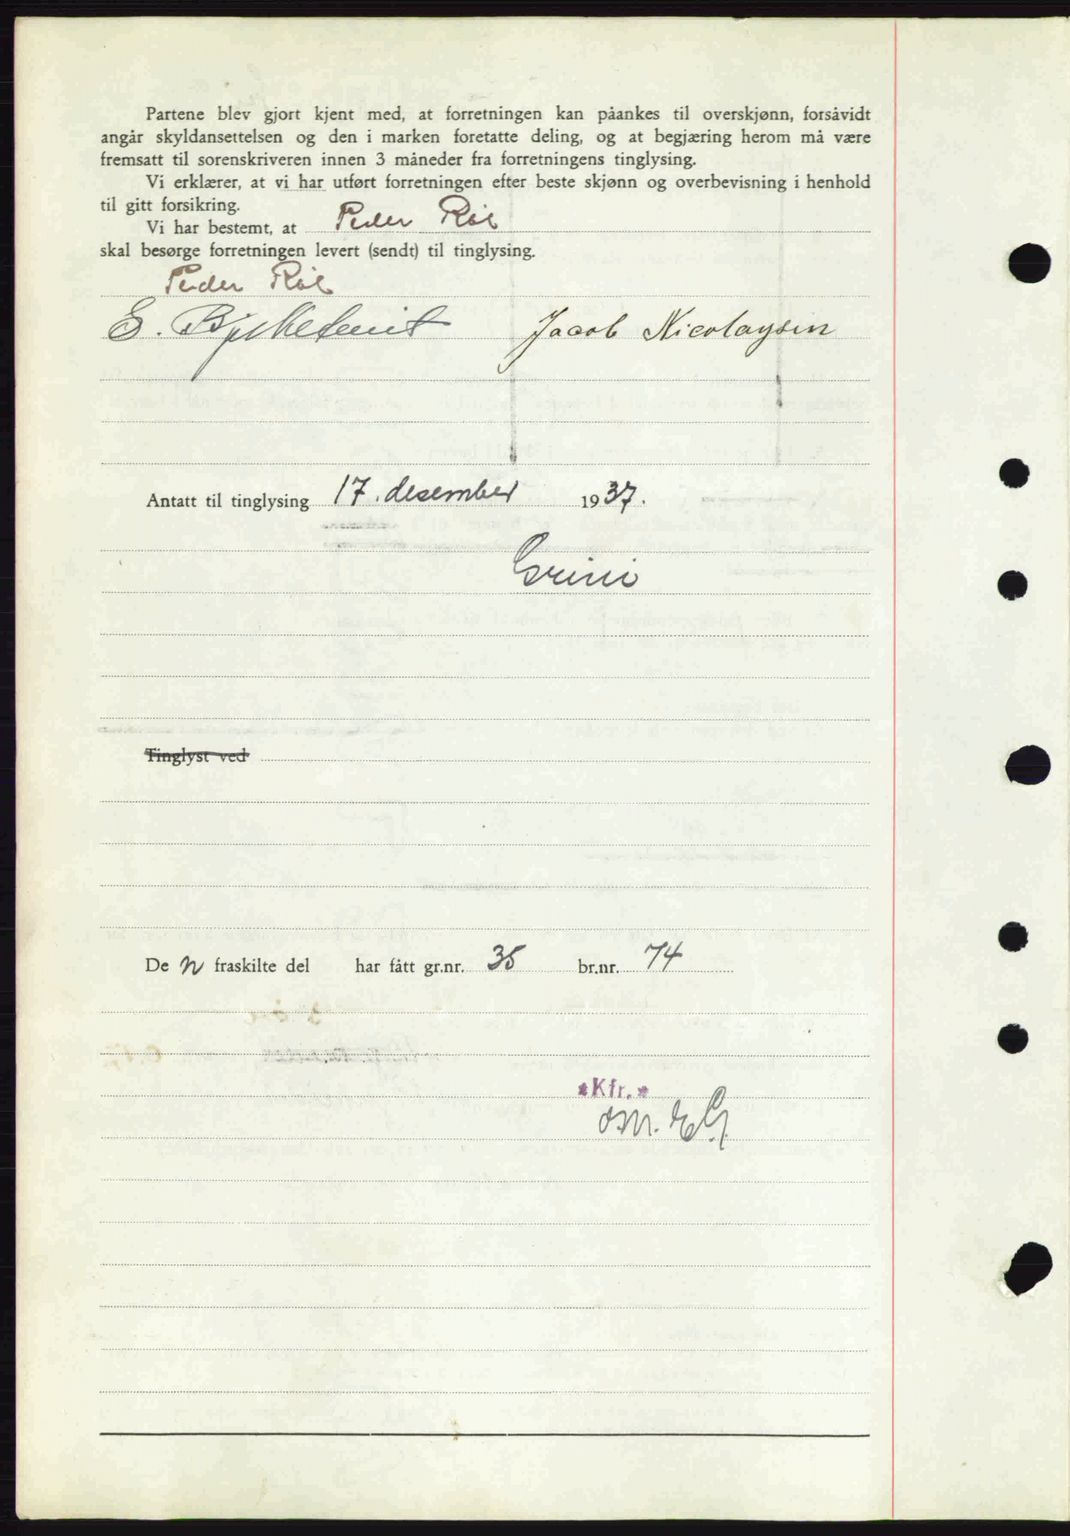 Partene blev gjort kjent med, at forretningen kan påankes til overskjønn, forsåvidt
angår skyldansettelsen og den i marken foretatte deling, og at begjæring herom må være
fremsatt til sorenskriveren innen 3 måneder fra forretningens tinglysing.
Vi erklærer, at vi har utført forretningen efter beste skjønn og overbevisning i henhold
til gitt forsikring.
Vi har bestemt, at Peder Röe
skal besørge forretningen levert (sendt) til tinglysing.
Peder Röe
E. Jacob Nicolaysen
Antatt til tinglysing 17. desember 1937.
Grini
Tinglyst ved
De n fraskilte del har fått gr.nr. 35 br.nr. 74
*Kfr.*